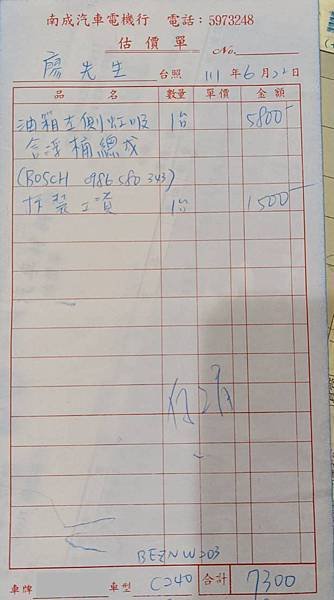 南成汽車電機行 電話：5973248
估價單 No.
廖先生 台照 111年6月22日
品名 數量 單價 金額
油箱左側虹吸 1台 5800
含浮桶總成
(BOSCH 0986580343)
拆裝工資 1台 1500
BEZN W203
車牌 車型 C240 合計 7300